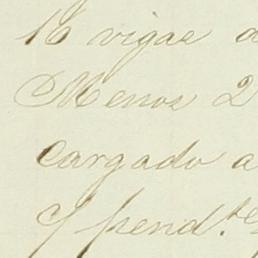 16 vigas a
Menos 2
cargado a
pend.te